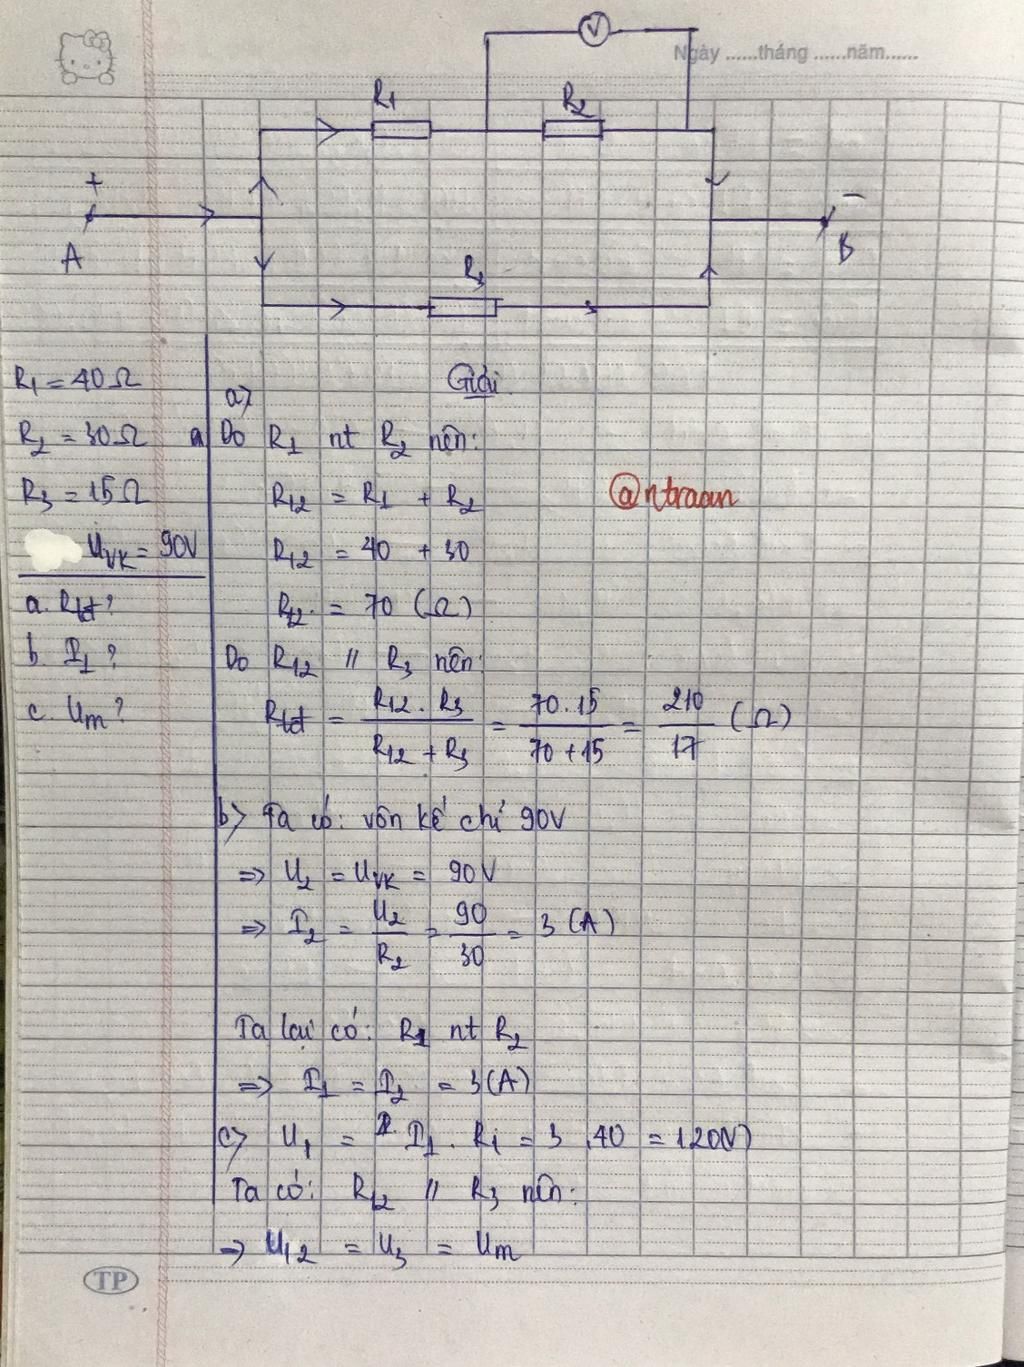 Ngày ......tháng ......năm......
V
R1 R2
+ -
A B
R3
R1 = 40Ω
R2 = 30Ω
R3 = 15Ω
UVK = 90V
a. Rtđ?
b. I1?
c. Um?
Giải
a)
a Do R1 nt R2 nên:
R12 = R1 + R2
@ntraan
R12 = 40 + 30
R12 = 70 (Ω)
Do R12 // R3 nên:
Rtđ = R12 . R3 / R12 + R3 = 70 . 15 / 70 + 15 = 210 / 17 (Ω)
b) Ta có: vôn kế chỉ 90V
=> U2 = UVK = 90V
=> I2 = U2 / R2 = 90 / 30 = 3 (A)
Ta lại có: R1 nt R2
=> I1 = I2 = 3(A)
c) U1 = I1 . R1 = 3 . 40 = 120(V)
Ta có: R12 // R3 nên:
=> U12 = U3 = Um
TP